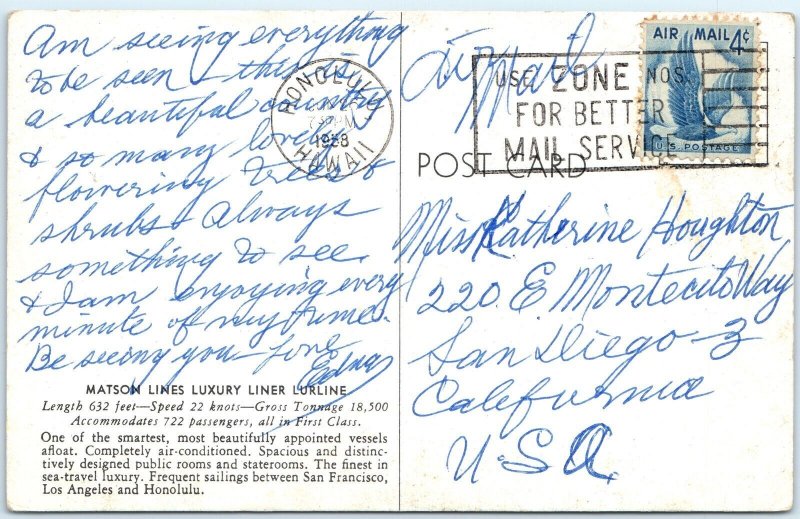 Am seeing everything
to be seen - this is
a beautiful country
& so many lovely
flowering trees &
shrubs & Always
something to see.
& I am enjoying every
minute of my time.
Be seeing you - love
Edna
MATSON LINES LUXURY LINER LURLINE
Length 632 feet—Speed 22 knots—Gross Tonnage 18,500
Accommodates 722 passengers, all in First Class.
One of the smartest, most beautifully appointed vessels
afloat. Completely air-conditioned. Spacious and distinc-
tively designed public rooms and staterooms. The finest in
sea-travel luxury. Frequent sailings between San Francisco,
Los Angeles and Honolulu.
HONOLULU
PM
1958
HAWAII
Air Mail
USE ZONE NOS.
FOR BETTER
MAIL SERVICE
AIR MAIL 4¢
U.S. POSTAGE
POST CARD
Miss Katherine Houghton
220 E. Montecito Way
San Diego - 3
California
U.S.A.